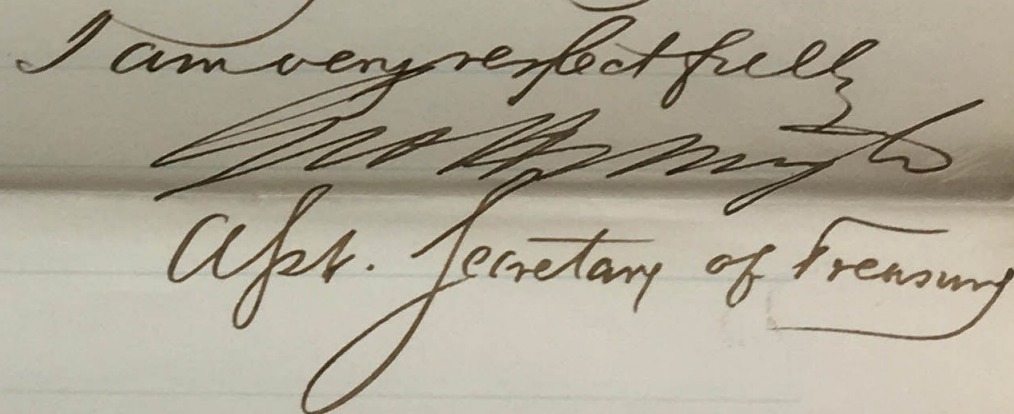 I am very respectfully
Asst. Secretary of Treasury